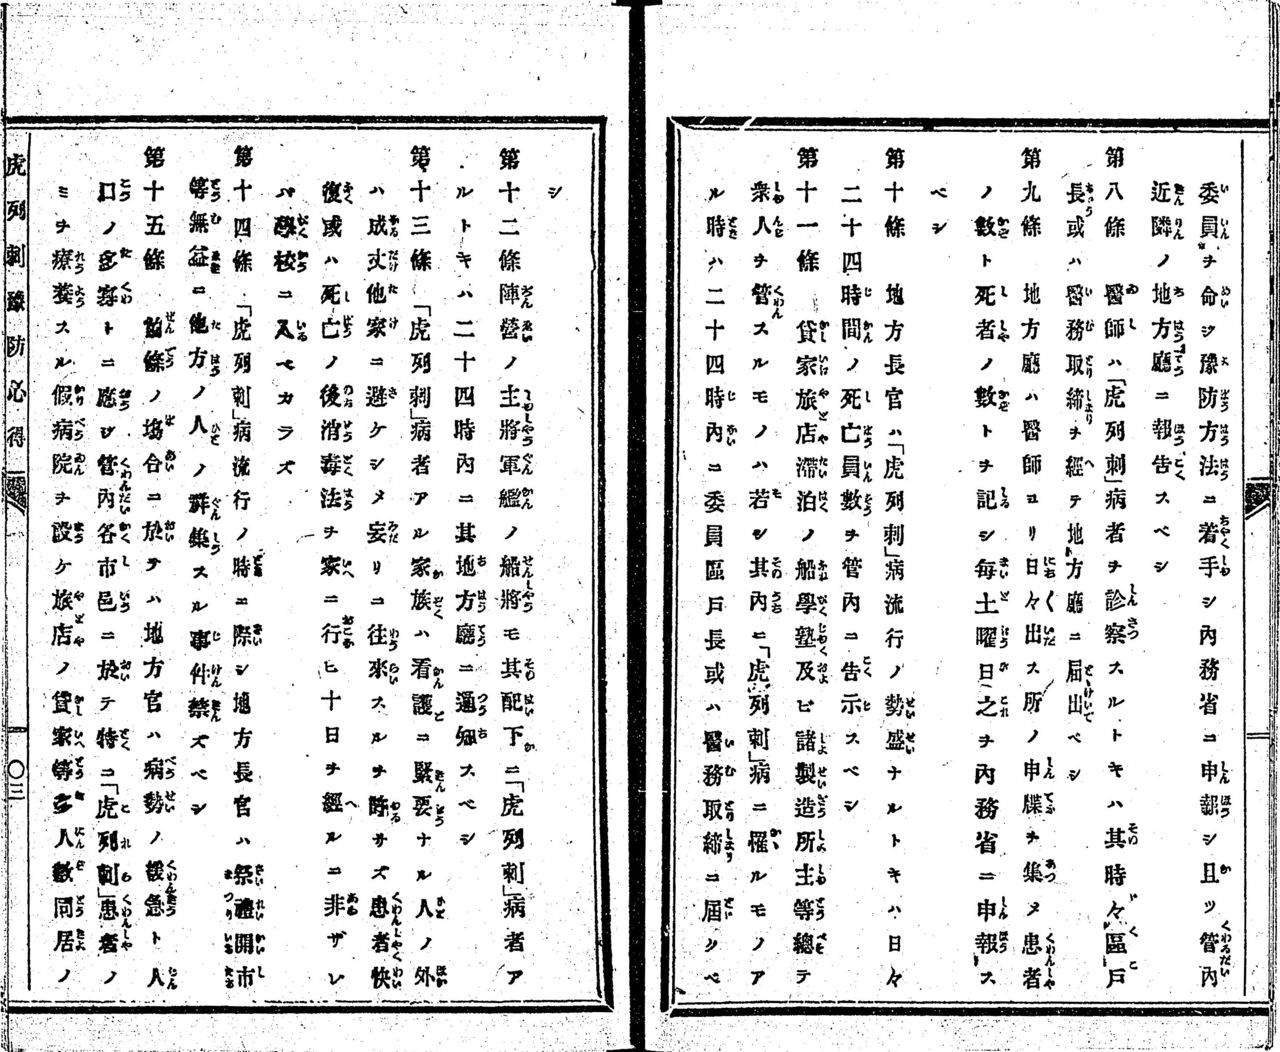 委員ヲ命シ豫防方法ニ着手シ內務省ニ申報シ且ツ管內
近隣ノ地方廳ニ報告スベシ
第八條 醫師ハ「虎列刺」病者ヲ診察スルトキハ其時々區戶
長或ハ醫務取締ヲ經テ地方廳ニ屆出ベシ
第九條 地方廳ハ醫師ヨリ日々出ス所ノ申牒ヲ集メ患者
ノ數ト死者ノ數トヲ記シ每土曜日之ヲ內務省ニ申報ス
ベシ
第十條 地方長官ハ「虎列刺」病流行ノ勢盛ナルトキハ日々
二十四時間ノ死亡員數ヲ管內ニ告示スベシ
第十一條 貸家旅店滯泊ノ船學塾及ビ諸製造所主等總テ
衆人ヲ管スルモノハ若シ其內ニ「虎列刺」病ニ罹ルモノア
ル時ハ二十四時內ニ委員區戶長或ハ醫務取締ニ屆シベ
シ
第十二條 陣營ノ主將軍艦ノ船將モ其配下ニ「虎列刺」病者ア
ルトキハ二十四時內ニ其地方廳ニ通知スベシ
第十三條 「虎列刺」病者アル家族ハ看護ニ緊要ナル人ノ外
ハ成丈他家ニ避ケシメ妄リニ往來スルヲ時サズ患者快
復或ハ死亡ノ後消毒法ヲ家ニ行ヒ十日ヲ經ルニ非ザレ
バ學校ニ入ベカラズ
第十四條 「虎列刺」病流行ノ時ニ際シ地方長官ハ祭禮開市
等無益ニ他方ノ人ノ群集スル事件禁ズベシ
第十五條 前條ノ塲合ニ於テハ地方官ハ病勢ノ緩急ト人
口ノ多寡トニ應ジ管內各市邑ニ於テ特ニ「虎列刺」患者ノ
ミヲ療養スル假病院ヲ設ケ旅店ノ貸家等多人數同居ノ
虎列刺豫防必得
〇三